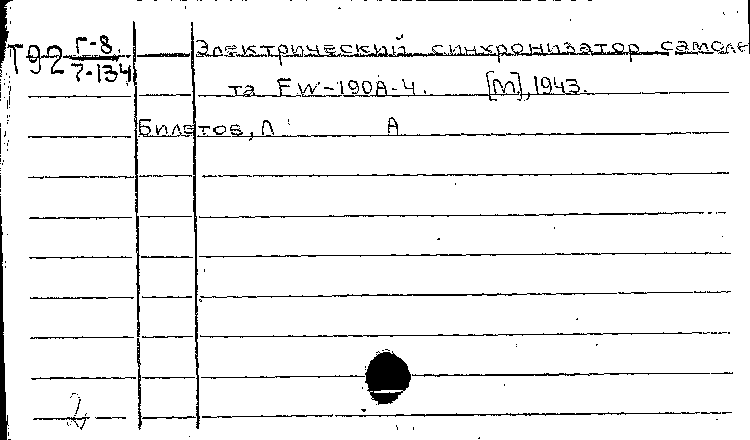 Т92 Г-8 Электрический синхронизатор самоле
7-134
та FW-190A-4. [М], 1943.
Билетов, Л А
2